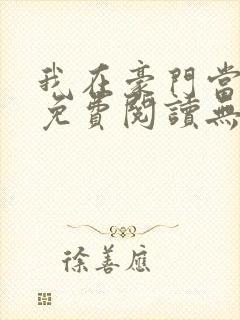 我在豪門當
免費閱讀無
徐善應